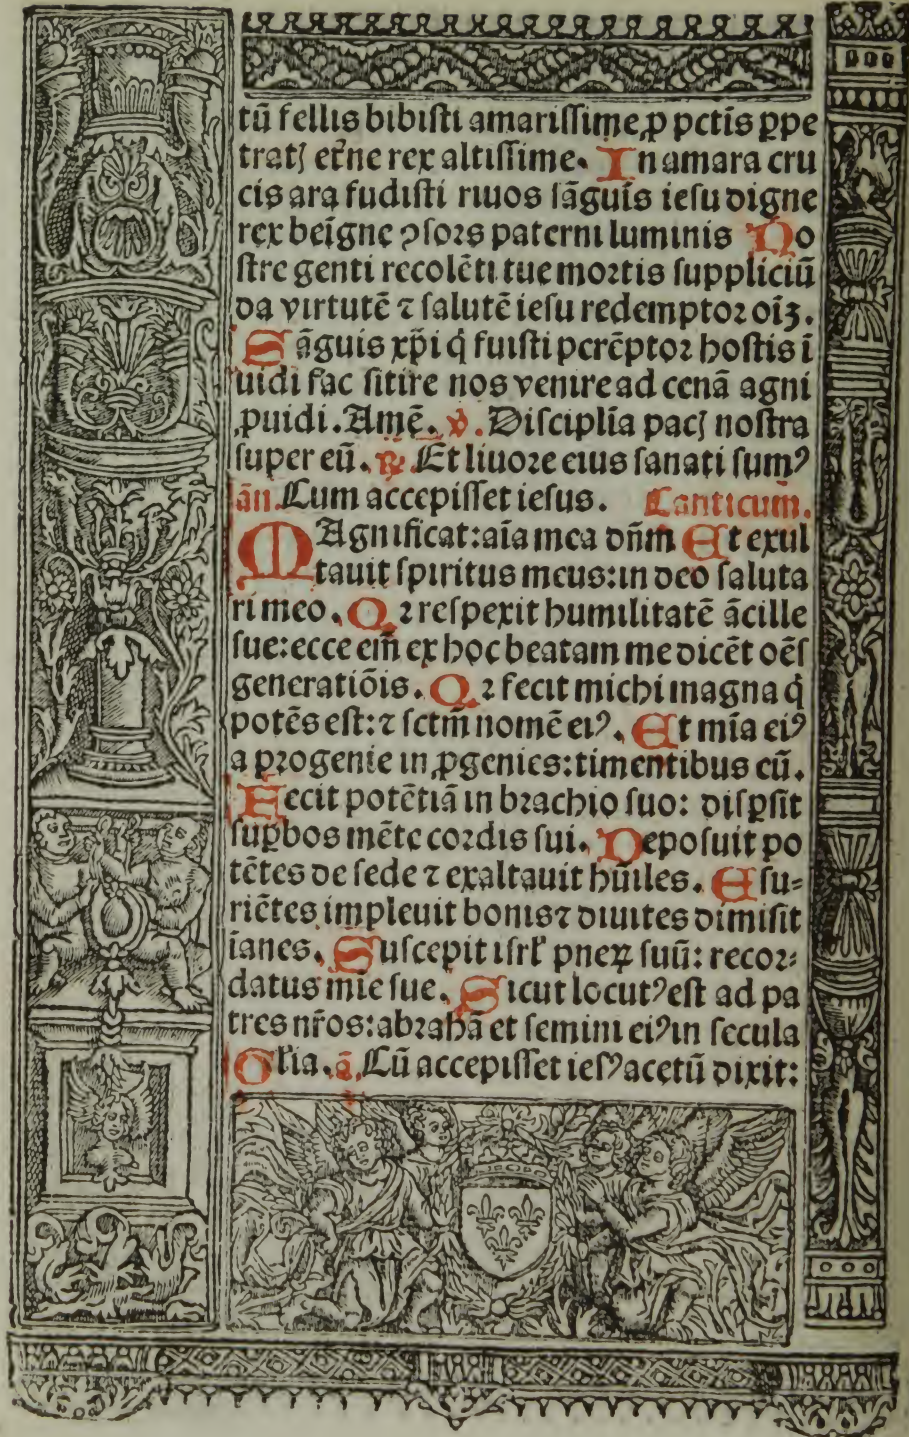 tū fellis bibisti amarissime, ꝓ pctis̄ ꝑpe
tratꝭ et̄ne rex altissime. In amara cru
cis ara fudisti riuos sāguis̄ iesu digne
rex beīgne ꝯsors paterni luminis No
stre genti recolēti tue mortis suppliciū
da virtutē ⁊ salutē iesu redemptor oīꝫ.
Sāguis xp̄i q̄ fuisti perēptor hostis ī
uidi fac sitire nos venire ad cenā agni
ꝓuidi. Amē. ℣. Discipl̄ia pacꝭ nostra
super eū. ℟. Et liuore eius sanati sumꝰ
ān. Cum accepisset iesus. Canticum̄.
MAgnificat: aīa mea dn̄m Et exul
tauit spiritus meus: in deo saluta
ri meo. Qꝛ respexit humilitatē ācille
sue: ecce em̄ ex hoc beatam me dicēt oēs
generatiōis. Qꝛ fecit michi magna q̄
potēs est: ⁊ sctm̄ nomē eiꝰ. Et mīa eiꝰ
a progenie in ꝓgenies: timentibus eū.
Fecit potētiā in brachio suo: disꝑsit
suꝑbos mēte cordis sui. Deposuit po
tētes de sede ⁊ exaltauit hūiles. Esu-
riētes impleuit bonis ⁊ diuites dimisit
īanes. Suscepit isrł pueꝝ suū: recor-
datus mīe sue. Sicut locutꝰ est ad pa
tres nr̄os: abrahā et semini eiꝰ in secula
Gl̄ia. ā. Cū accepisset iesꝰ acetū dixit: